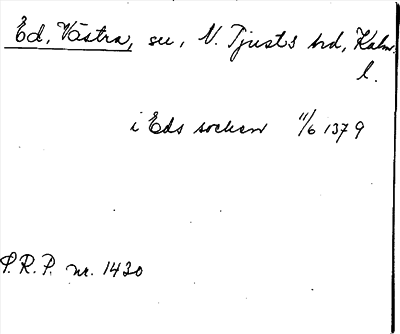 Ed, Västra, sn, N. Tjusts hd, Kalm.
l.
i Eds socken 11/6 1379
P.R.P. nr. 1430